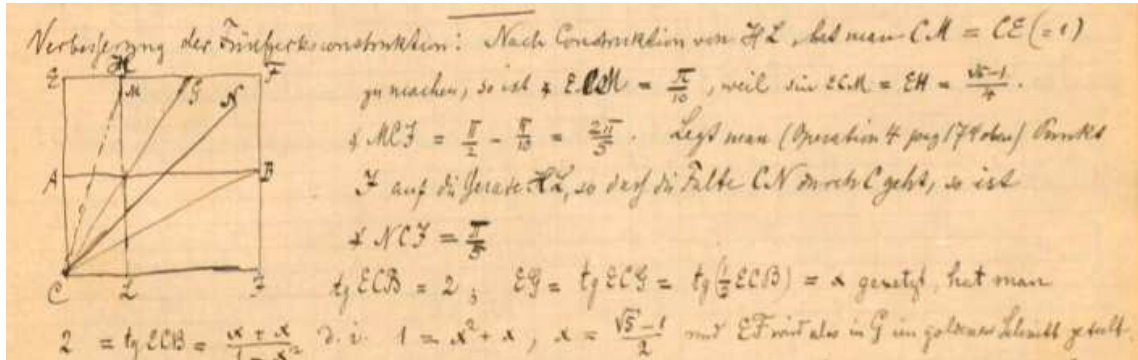 Verbesserung der Fünfeckconstruktion: Nach Construktion von HL, hat man CM = CE (=1)
E H F
M G N
zu machen, so ist ∢ ECM = π/10, weil sin ECM = EH = (√5-1)/4.
∢ MCJ = π/2 - π/10 = 2π/5. Legt man (Operation 4 pag 174 oben) Punkt
A B
J auf die Gerade HL, so dass die Falte CN durch C geht, so ist
∢ NCJ = π/5
C L J
tg ECB = 2; EG = tg ECG = tg(½ECB) = x gesetzt, hat man
2 = tg ECB = (x + x)/(1 - x²) d. i. 1 = x² + x, x = (√5-1)/2 und EF wird also in G im goldenen Schnitt geteilt.